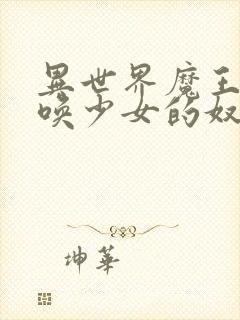 異世界魔王
喚少女的奴
坤華